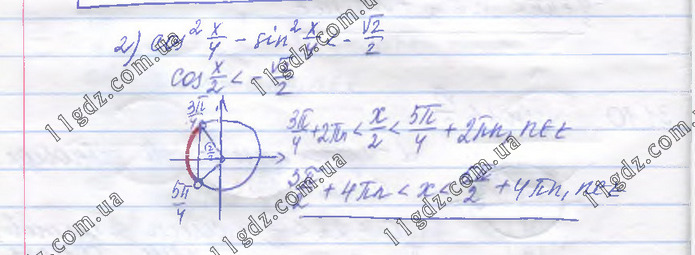 2) cos² x/4 - sin² x/4 < - √2/2
cos x/2 < - √2/2
3π/4
3π/4 + 2πn < x/2 < 5π/4 + 2πn, n∈Z
5π/4
3π/2 + 4πn < x < 5π/2 + 4πn, n∈Z
11gdz.com.ua
11gdz.com.ua
11gdz.com.ua
11gdz.com.ua
11gdz.com.ua
11gdz.com.ua